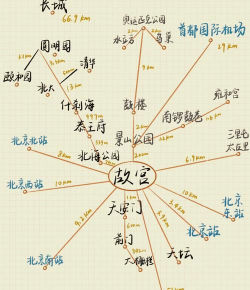 长城
66.9km
奥运匹克公园
首都国际机场
圆明园
水立方
鸟巢
29km
颐和园
清华
北大
13km
9km
什刹海
鼓楼
雍和宫
南锣鼓巷
恭王府
北京北站
景山公园
三里屯
太古里
北海公园
8km
2km
6.9km
北京西站
10km
故宫
10km
天安门
北京
东站
9.2km
北京站
前门
北京南站
大栅栏
天坛